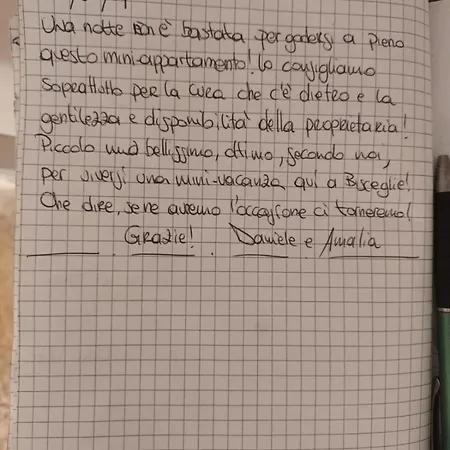 Una notte non è bastata per godersi a pieno
questo mini-appartamento! Lo consigliamo
soprattutto per la cura che c'è dietro e la
gentilezza e disponibilità della proprietaria!
Piccolo ma bellissimo, ottimo, secondo noi,
per viversi una mini-vacanza qui a Bisceglie!
Che dire, se ne avremo l'occasione ci torneremo!
Grazie! Daniele e Amalia